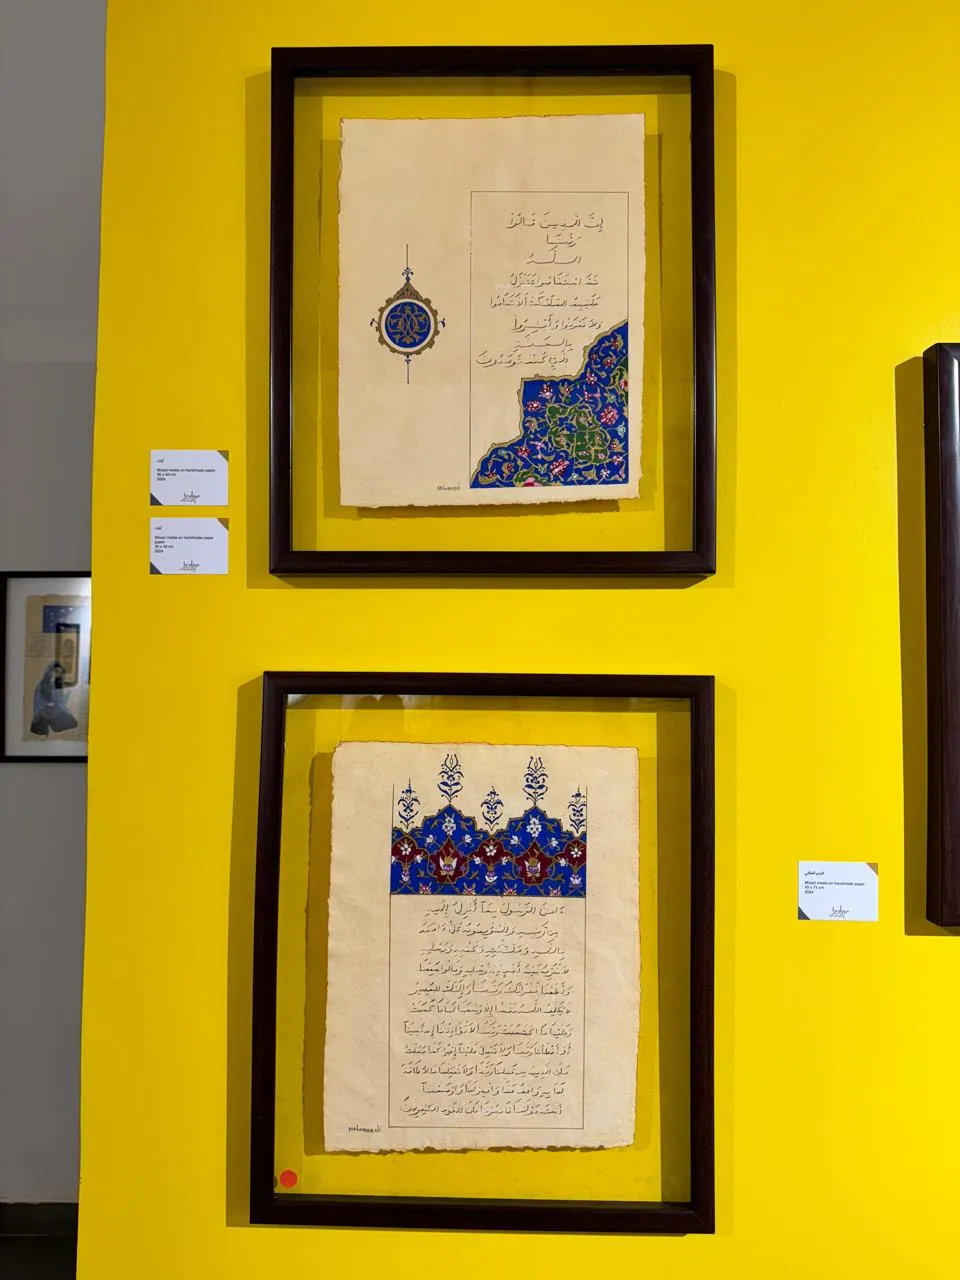 إِنَّ الَّذِينَ قَالُوا
رَبُّنَا
اللَّهُ
ثُمَّ اسْتَقَامُوا تَتَنَزَّلُ
عَلَيْهِمُ الْمَلَٰئِكَةُ أَلَّا تَخَافُوا
وَلَا تَحْزَنُوا وَأَبْشِرُوا
بِالْجَنَّةِ
الَّتِي كُنتُمْ تُوعَدُونَ
Mixed media on handmade paper
2024
Jedar
Mixed media on handmade paper
paper
2024
Jedar
ءَامَنَ الرَّسُولُ بِمَآ أُنزِلَ إِلَيْهِ
مِن رَّبِّهِ وَالْمُؤْمِنُونَ كُلٌّ ءَامَنَ
بِاللَّهِ وَمَلَٰئِكَتِهِ وَكُتُبِهِ وَرُسُلِهِ
لَا نُفَرِّقُ بَيْنَ أَحَدٍ مِّن رُّسُلِهِ وَقَالُوا سَمِعْنَا
وَأَطَعْنَا غُفْرَانَكَ رَبَّنَا وَإِلَيْكَ الْمَصِيرُ
لَا يُكَلِّفُ اللَّهُ نَفْسًا إِلَّا وُسْعَهَا لَهَا مَا كَسَبَتْ
وَعَلَيْهَا مَا اكْتَسَبَتْ رَبَّنَا لَا تُؤَاخِذْنَا إِن نَّسِينَآ
أَوْ أَخْطَأْنَا رَبَّنَا وَلَا تَحْمِلْ عَلَيْنَآ إِصْرًا كَمَا حَمَلْتَهُ
عَلَى الَّذِينَ مِن قَبْلِنَا رَبَّنَا وَلَا تُحَمِّلْنَا مَا لَا طَاقَةَ
لَنَا بِهِ وَاعْفُ عَنَّا وَاغْفِرْ لَنَا وَارْحَمْنَآ
أَنتَ مَوْلَانَا فَانصُرْنَا عَلَى الْقَوْمِ الْكَافِرِينَ
Mixed media on handmade paper
45 x 71 cm
2024
Jedar